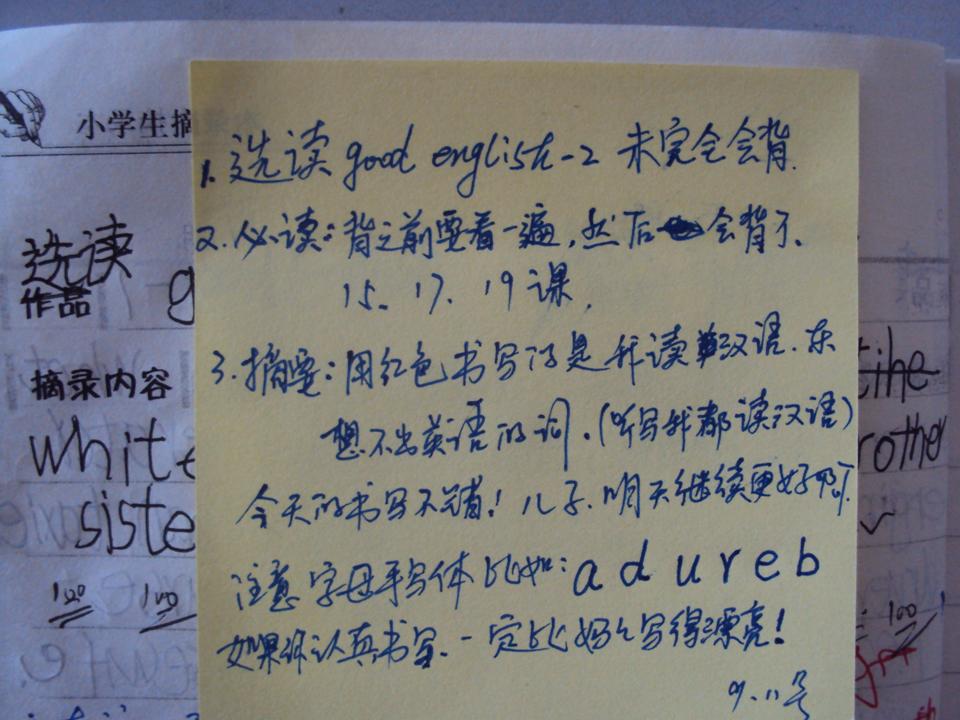 小学生摘
1. 选读 good english-2 未完全会背.
选读
作品 g
2. 必读:背之前要看一遍,然后会背了、
15、17、19课.
3. 摘要:用红色书写的是我读汉语.东
摘录内容
想不出英语的词.(听写我都读汉语)
white
rother
siste
今天的书写不错!儿子.明天继续更好啊
注意字母手写体比如:a d u r e b
100 100
100
如果你认真书写、一定比妈妈写得漂亮!
9.11号